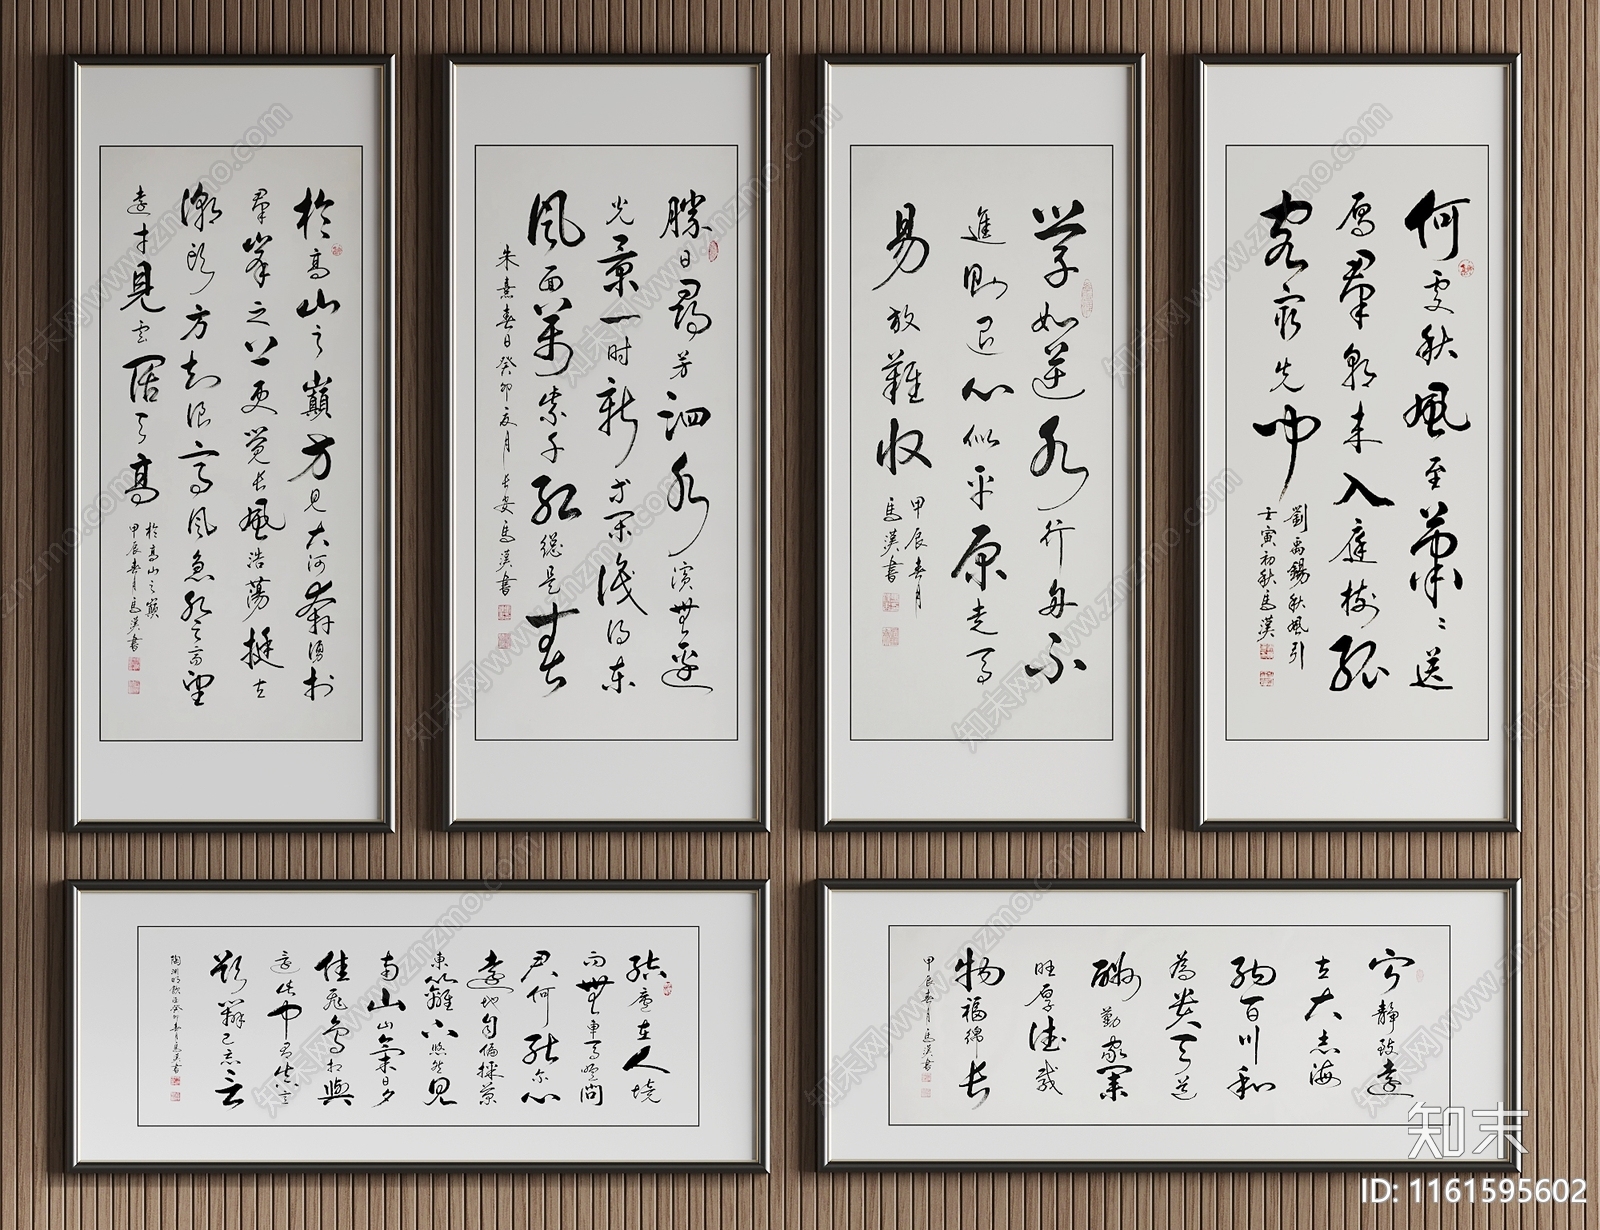 於高山之巔方見大河奔湧於
羣峯之上更覺長風浩蕩挺立
潮頭方知浪高風急登高望
遠才見雲闊天高
於高山之巔
甲辰春月馬漢書
勝日尋芳泗水濱無邊
光景一时新等閑識得東
風面萬紫千紅總是春
朱熹春日癸卯夏月長安馬漢書
学如逆水行舟不
進則退心似平原走馬
易放難收
甲辰春月
馬漢書
何處秋風至蕭〻送
雁羣朝來入庭樹孤
客最先聞
劉禹錫秋風引
壬寅初秋馬漢
結廬在人境
而無車馬喧問
君何能尔心
遠地自偏採菊
東籬下悠然見
南山山氣日夕
佳飛鳥相與
還此中有真意
欲辯已忘言
陶淵明飲酒癸卯春月馬漢書
寧靜致遠
立大志海
納百川和
為貴天道
酬勤家業
旺厚德載
物福綿长
甲辰春月馬漢書
知末
ID: 1161595602
知末网www.znzmo.com